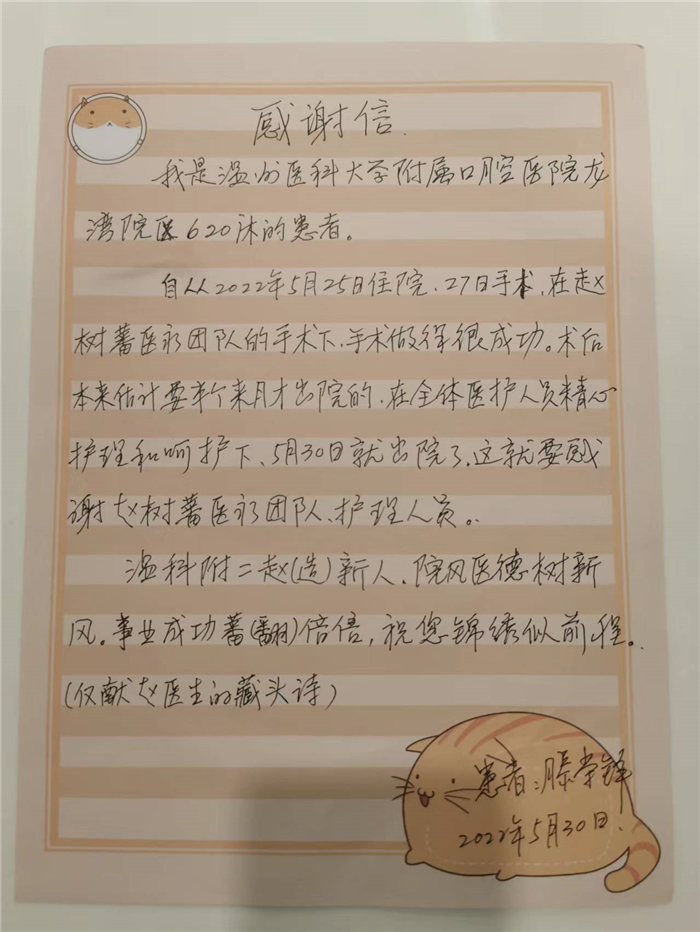 感谢信.
我是温州医科大学附属口腔医院龙
湾院区620床的患者。
自从2022年5月25日住院.27日手术,在赵
树蕃医师团队的手术下,手术做得很成功。术后
本来估计要半个来月才出院的,在全体医护人员精心
护理和呵护下、5月30日就出院了,这就要感
谢赵树蕃医师团队、护理人员。
温科附二赵(造)新人、院风医德树新
风。事业成功蕃(翻)倍倍,祝您锦绣似前程。
(仅献赵医生的藏头诗)
患者:滕
2022年5月30日.